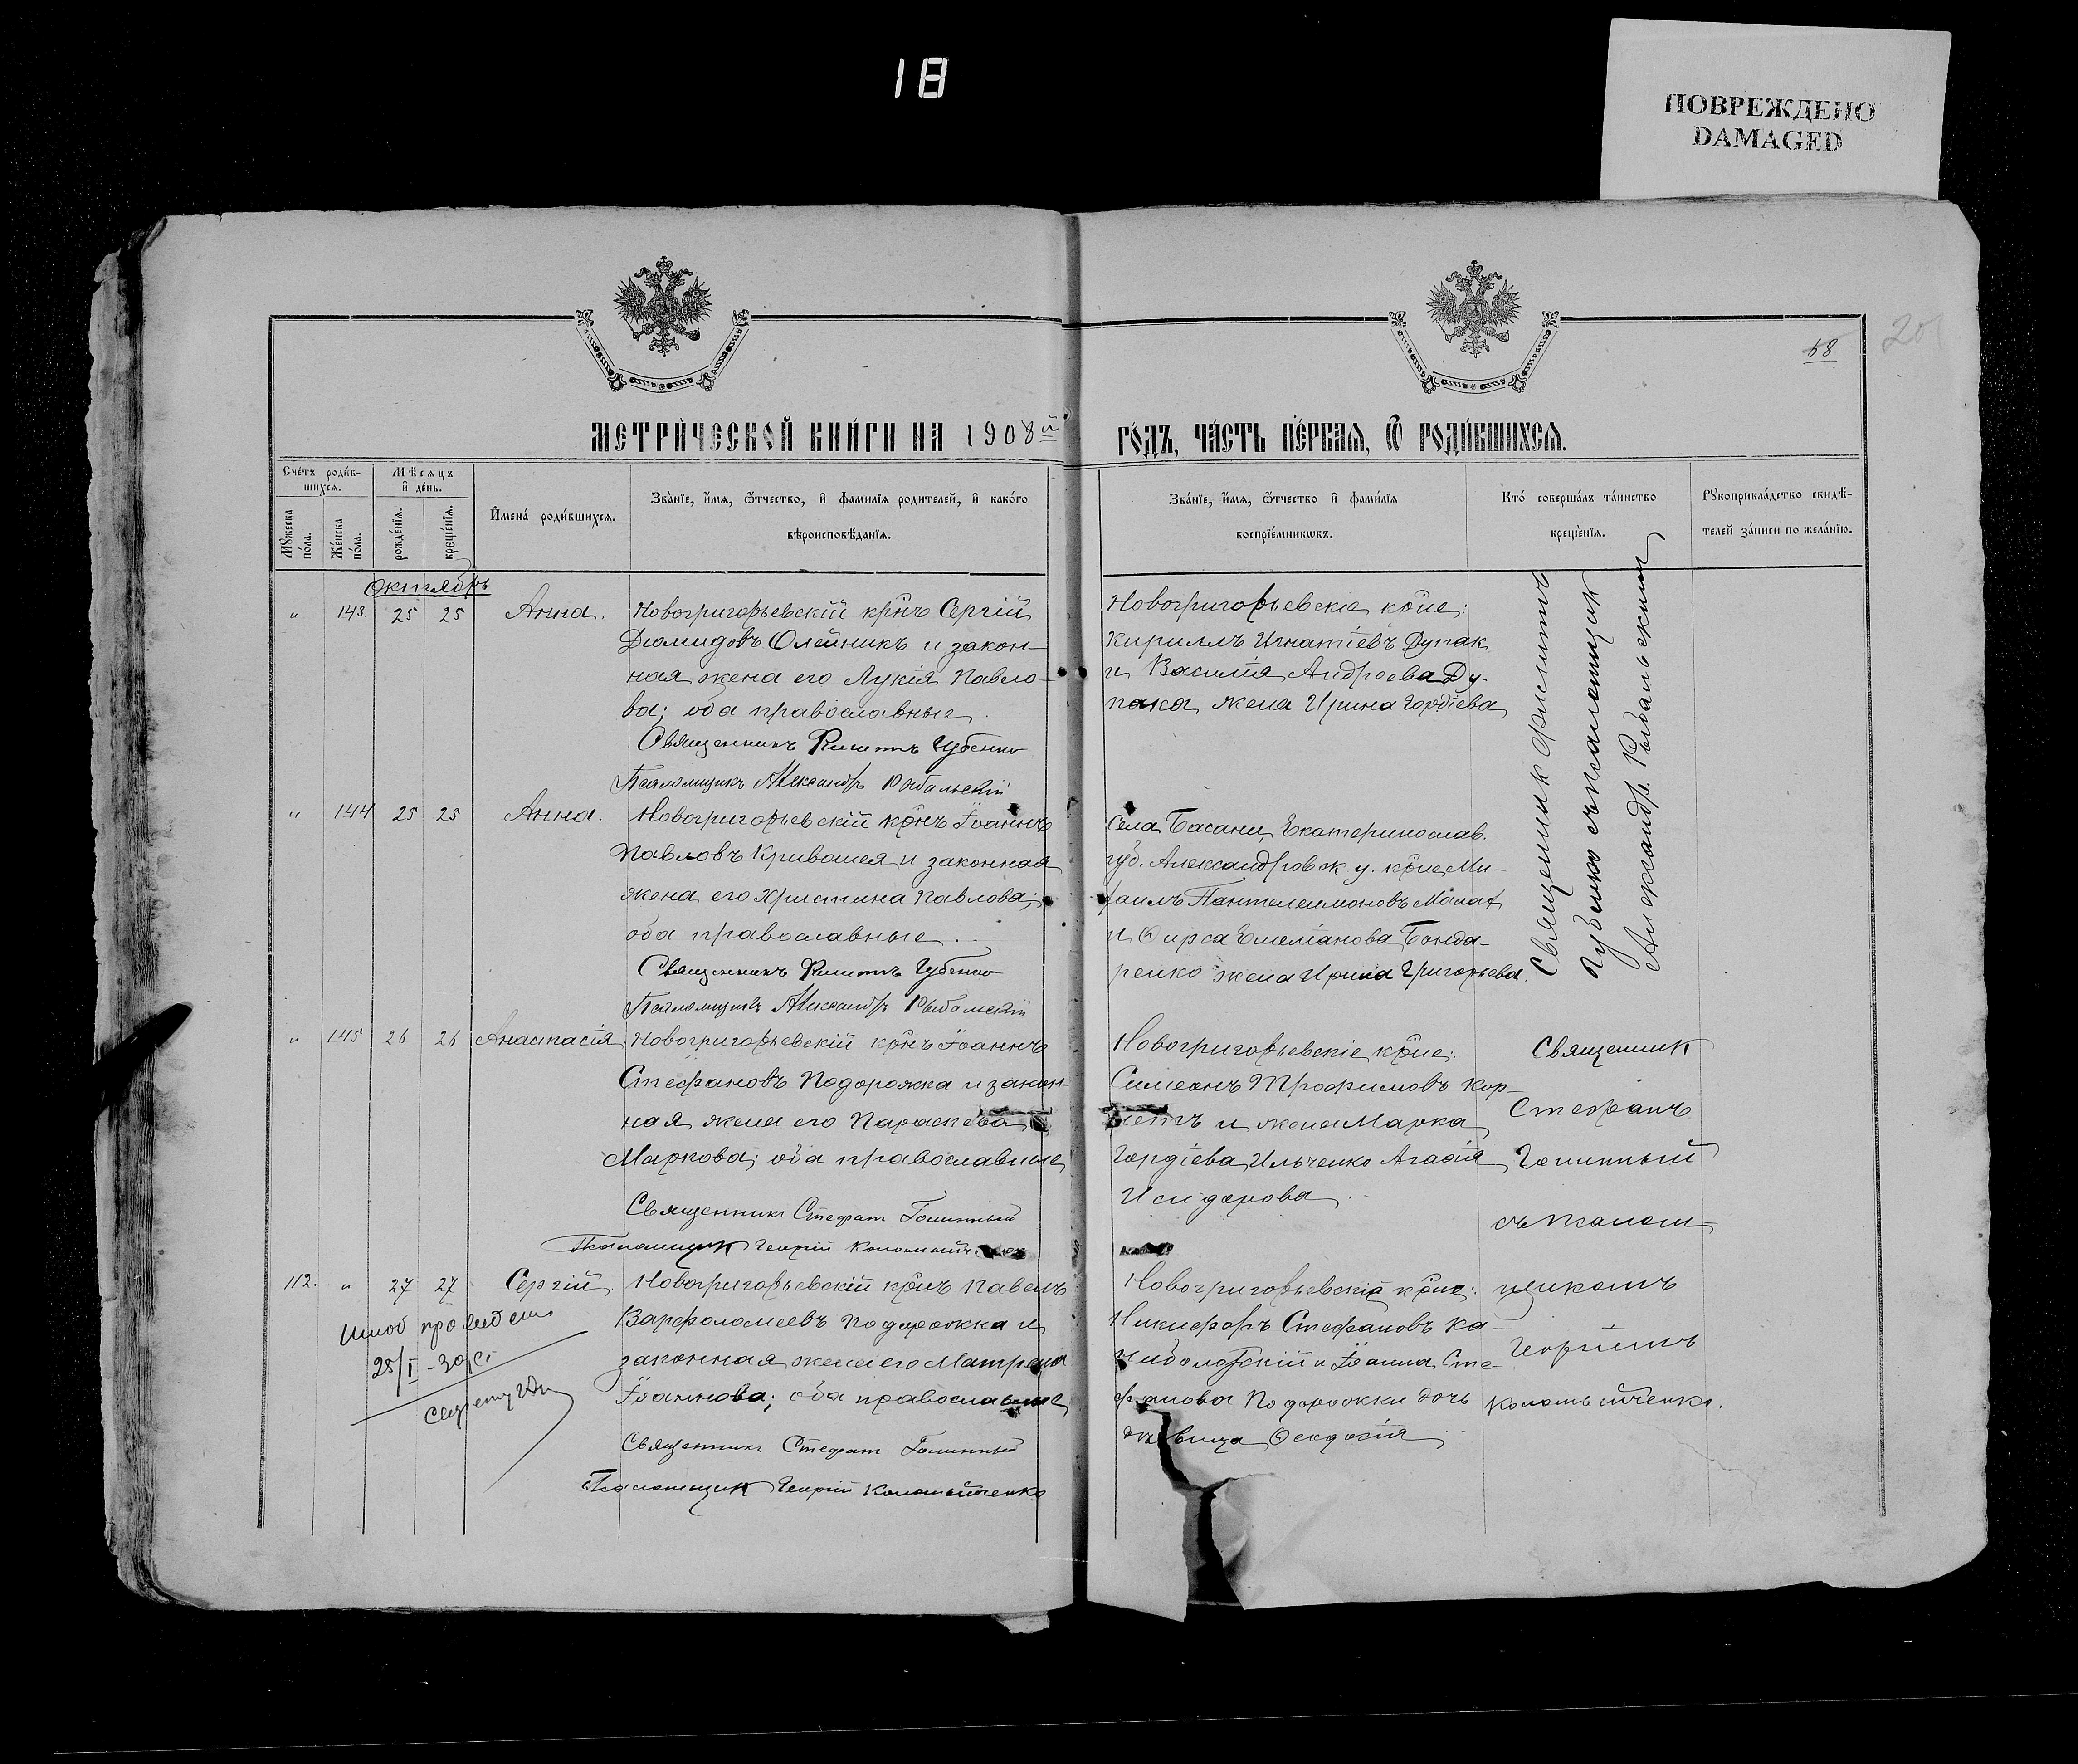 18
ПОВРЕЖДЕНО
DAMAGED
58
20
МЕТРИ́ЧЕСКОЙ КНИ́ГИ НА 1908й
ГО́ДЪ, ЧА́СТЬ ПЕ́РВАЯ, Ѿ РОДИ́ВШИХСЯ.
Сче́тъ роди́в-
шихся.
Мѣсяцъ
и де́нь.
Мꙋжеска
по́ла.
Же́нска
по́ла.
рожде́нїя.
креще́нїя.
Имена́ роди́вшихся.
Зва́нїе, и́мя, ѻ́тчество, и фамилїя родителей, и како́го
вѣроисповѣданїя.
Зва́нїе, и́мя, ѻ́тчество и фами́лїя
воспрїе́мникѡвъ.
Кто́ соверша́лъ та́инство
креще́нїя.
Рꙋкоприкла́дство свидѣ-
телей за́писи по жела́нїю.
Октябрь
" 143. 25 25 Анна. Новогригорьевскій крнъ Сергій
Дiомидовъ Олейникъ и закон-
ная жена его Лукія Павло-
ва; оба православные.
Священникъ Филиппъ Губенко
Псаломщикъ Александръ Рыбальскій
Новогригорьевскіе крне:
Кирилъ Игнатіевъ Дупак
и Василія Андреева Ду-
пака жена Ирина Гордіева
Священник Филиппъ
Губенко съ псаломщиком
Александр. Рыбальским
" 144 25 25 Анна. Новогригорьевскій крнъ Іоаннъ
Павловъ Кривошея и законная
жена его Христина Павлова;
оба православные.
Священникъ Филиппъ Губенко
Псаломщикъ Александръ Рыбальскій
Села Басани, Екатеринослав.
губ. Александровск. у. крне Ми-
хаилъ Пантелеимоновъ
и Фирса Емеліанова Бонда-
ренко жена Ирина Григорьева.
" 145 26 26 Анастасія Новогригорьевскій крнъ Іоаннъ
Стефановъ Подорожка и закон-
ная жена его Параскева
Маркова; оба православные
Священникъ Стефанъ Голинный
Псаломщик Георгій Коломыйченко
Новогригорьевскіе крне:
Симеонъ Трофимовъ Кор-
и жена Марка
Гордіева Ильченко Агафія
Исидорова.
Священник
Стефанъ
Голинный
съ псалом
щикомъ
Георгіемъ
Коломыйченко.
112. " 27 27 Сергій. Новогригорьевскій крнъ Павелъ
Варфоломеевъ Подорожка и
законная жена его Матрона
Іоаннова; оба православные
Священникъ Стефанъ Голинный
Псаломщик Георгій Коломыйченко
Новогригорьевскіе крне:
Никифоръ Стефановъ Ка-
и Іоанна Сте-
фанова Подорожки дочь
дѣвица Феодосія
25/I - 30